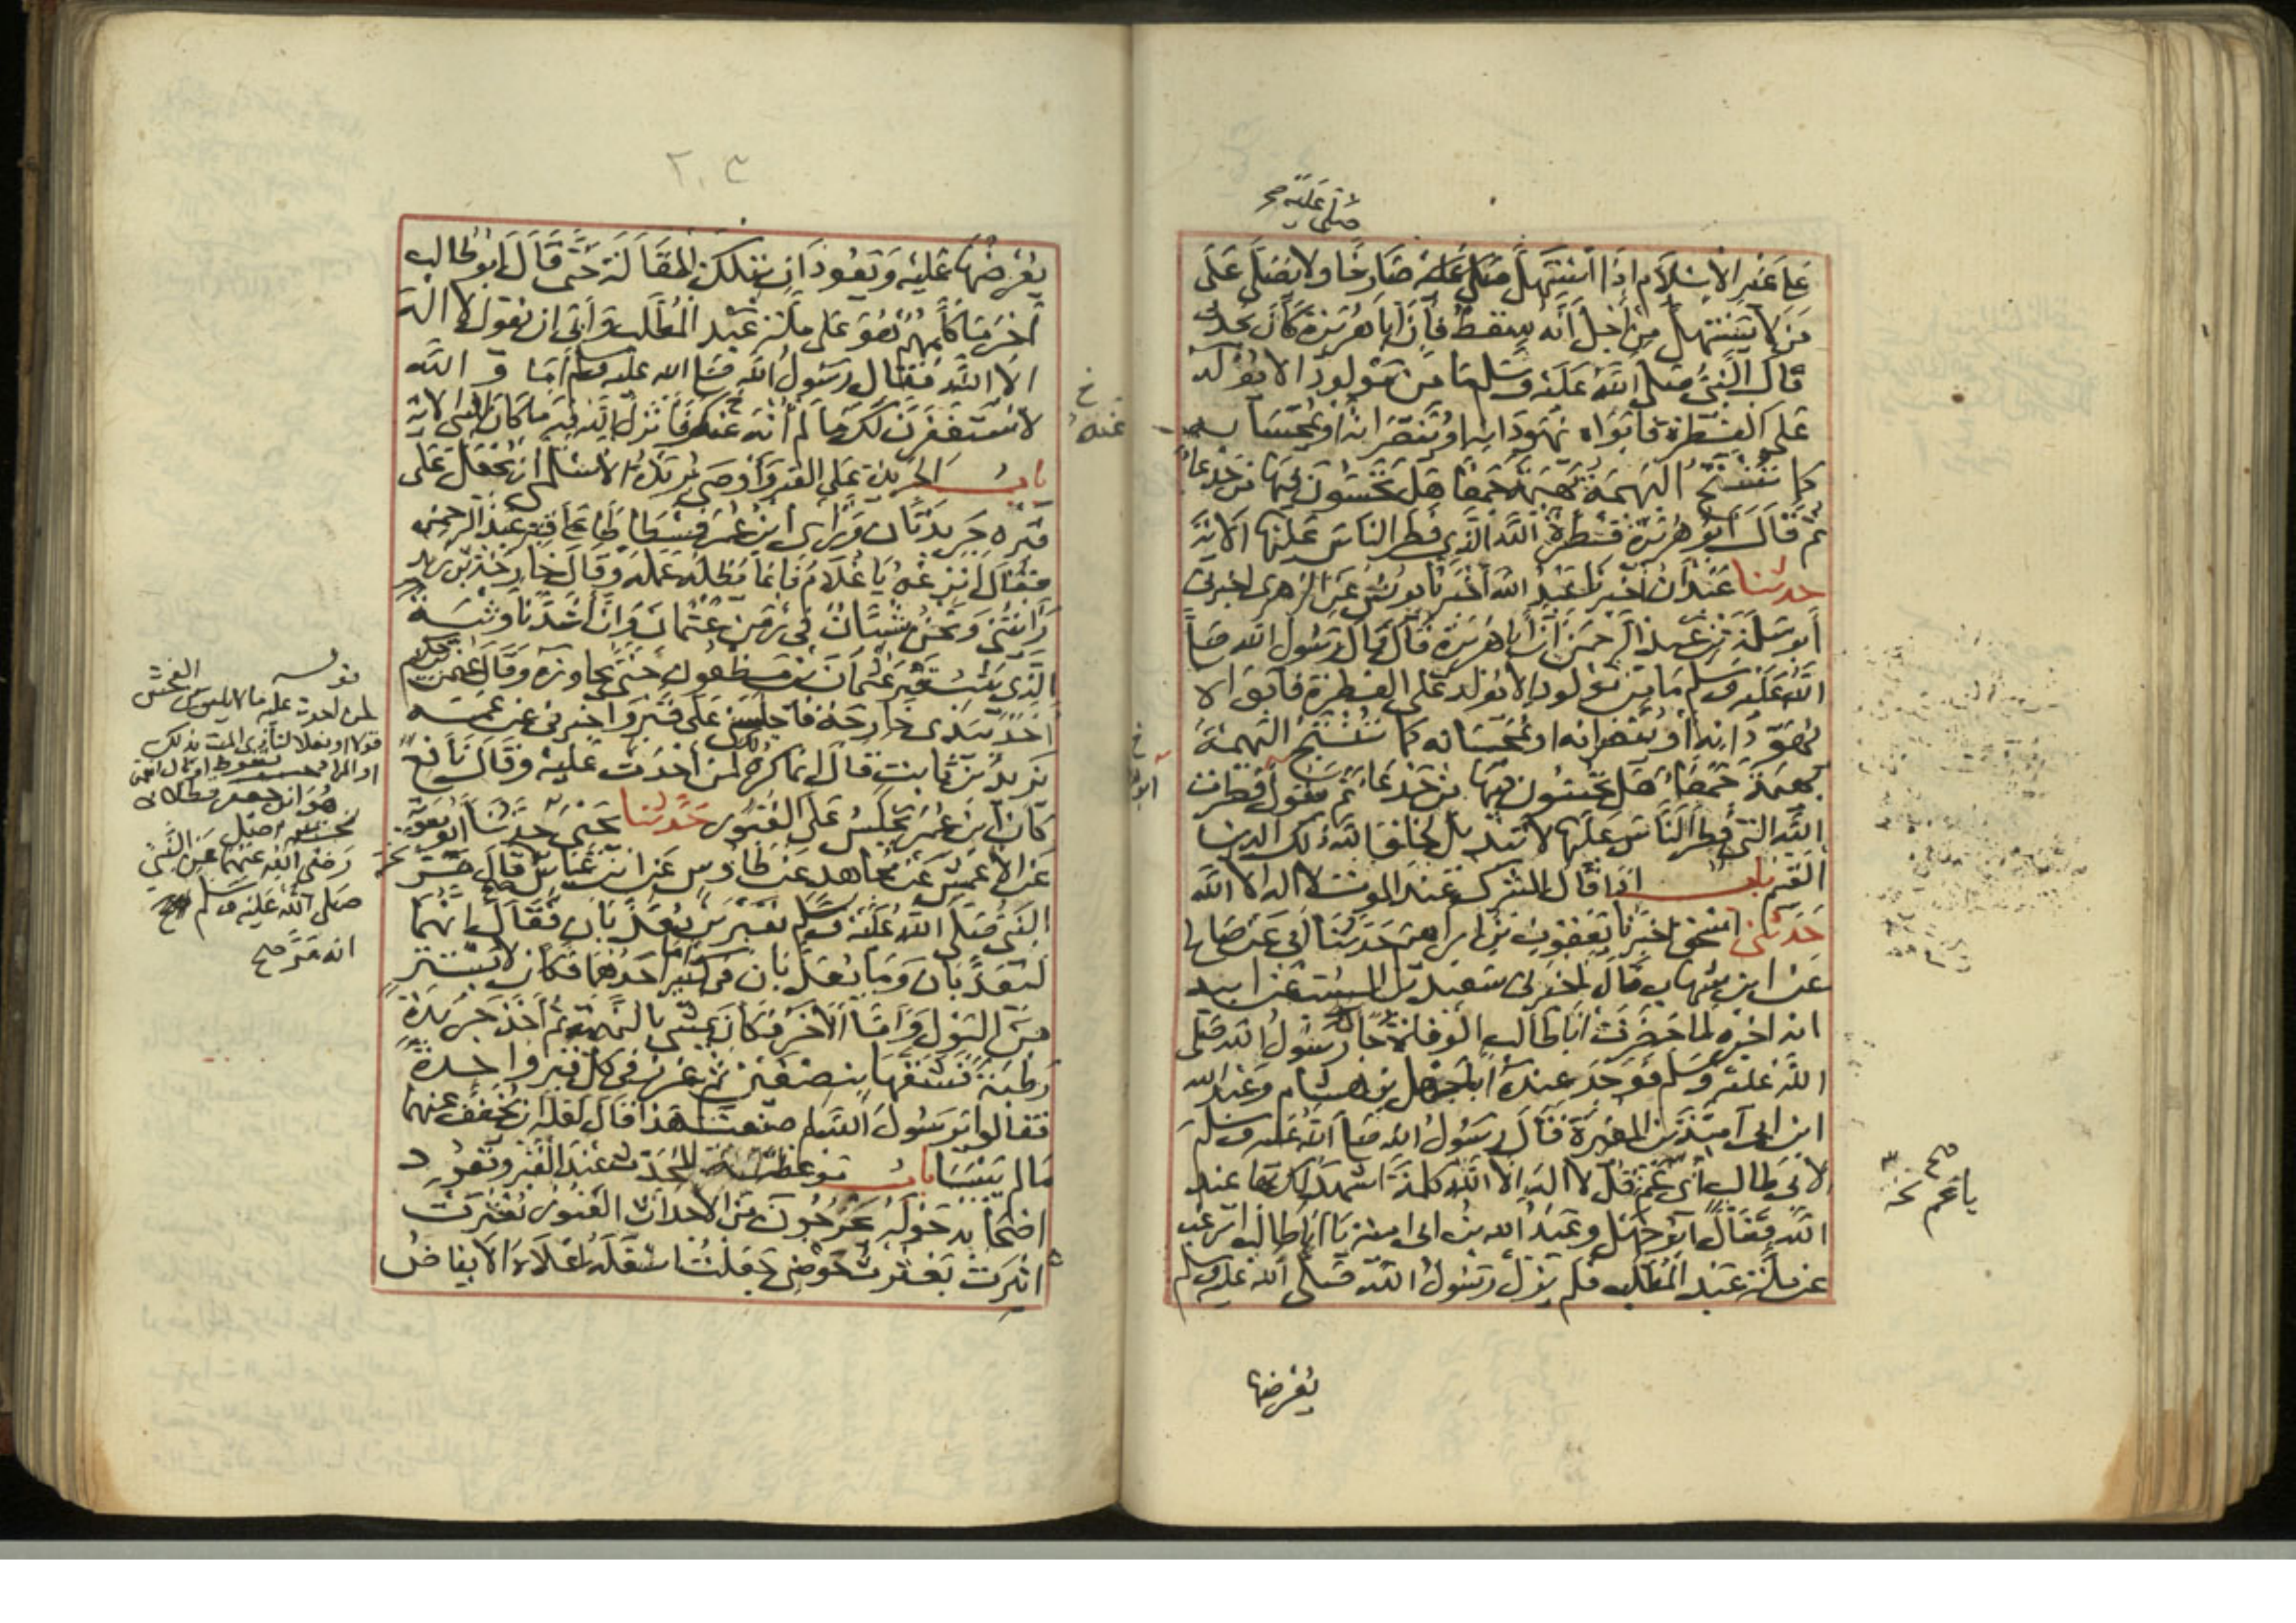 صلي عليه صح
على غير الاسلام اذا استهل صلي عليه صارخا ولا يصلي على
من لا يستهل من اجل انه سقط فان ابا هريرة كان يحدث
قال النبي صلى الله عليه وسلم ما من مولود الا يولد
على الفطرة فابواه يهودانه او ينصرانه او يمجسانه
كما تنتج البهيمة بهيمة جمعا هل تحسون فيها من جدعا
ثم قال ابو هريرة فطرة الله الذي فطر الناس عليها الاية
حدثنا عبدان اخبرنا عبد الله اخبرنا يونس عن الزهري اخبرني
ابو سلمة بن عبد الرحمن ان ابا هريرة قال قال رسول الله صلى
الله عليه وسلم ما من مولود الا يولد على الفطرة فابواه
يهودانه او ينصرانه او يمجسانه كما تنتج البهيمة
بهيمة جمعا هل تحسون فيها من جدعا ثم يقول فطرت
الله التي فطر الناس عليها لا تبديل لخلق الله ذلك الدين
القيم باب اذا قال المشرك عند الموت لا اله الا الله
حدثني اسحق اخبرنا يعقوب بن ابراهيم حدثنا ابي عن صالح
عن ابن شهاب قال اخبرني سعيد بن المسيب عن ابيه
انه اخبره لما حضرت ابا طالب الوفاة جاه رسول الله صلى
الله عليه وسلم فوجد عنده ابا جهل بن هشام وعبد الله
ابن ابي امية بن المغيرة فقال رسول الله صلى الله عليه وسلم
لابي طالب اي عم قل لا اله الا الله كلمة اشهد لك بها عند
الله فقال ابو جهل وعبد الله بن ابي امية يا ابا طالب اترغب
عن ملة عبد المطلب فلم يزل رسول الله صلى الله عليه وسلم
صح
يا عم نخـ
يعرضها
٢٠٣
يعرضها عليه ويعودان بتلك المقالة حتى قال ابو طالب
اخر ما كلمهم هو على ملة عبد المطلب وابى ان يقول لا اله
الا الله فقال رسول الله صلى الله عليه وسلم اما و الله
لاستغفرن لك ما لم انه عنك فانزل الله فيه ما كان للنبي الاية
خ
عنه
باب الجريد على القبر واوصى بريدة الاسلمي ان يجعل على
قبره جريدتان وراى ابن عمر فسطاطا على قبر عبد الرحمن
فقال انزعه يا غلام فانما يظله عمله وقال خارجة بن زيد
رايتني ونحن شبان في زمن عثمان وان اشدنا وثبة
الذي يثب قبر عثمان بن مظعون حتى يجاوزه وقال عثمن بن حكيم
اخذ بيدي خارجة فاجلسني على قبر واخبرني عن عمه
يزيد بن ثابت قال انما كره ذلك لمن احدث عليه وقال نافع
كان ابن عمر يجلس على القبور حدثنا يحيى حدثنا ابو معوية
عن الاعمش عن مجاهد عن طاوس عن ابن عباس قال مر
النبي صلى الله عليه وسلم بقبرين يعذبان فقال انهما
ليعذبان وما يعذبان في كبير اما احدهما فكان لا يستتر
من البول واما الاخر فكان يمشي بالنميمة ثم اخذ جريدة
رطبة فشقها بنصفين ثم غرز في كل قبر واحدة
فقالوا يرسول الله لم صنعت هذا فقال لعله ان يخفف عنهما
ما لم ييبسا باب موعظة المحدث عند القبر وقعود
اصحابه حوله يخرجون من الاجداث القبور بعثرت
اثيرت بعثرت حوضي جعلت اسفله اعلاه الايفاض
قوله
لمن احدث عليه ما لا يليق من الفحش
قولا او فعلا لتاذي الميت بذلك
رضي الله عنهما عن النبي
صلى الله عليه وسلم
انه مر صح